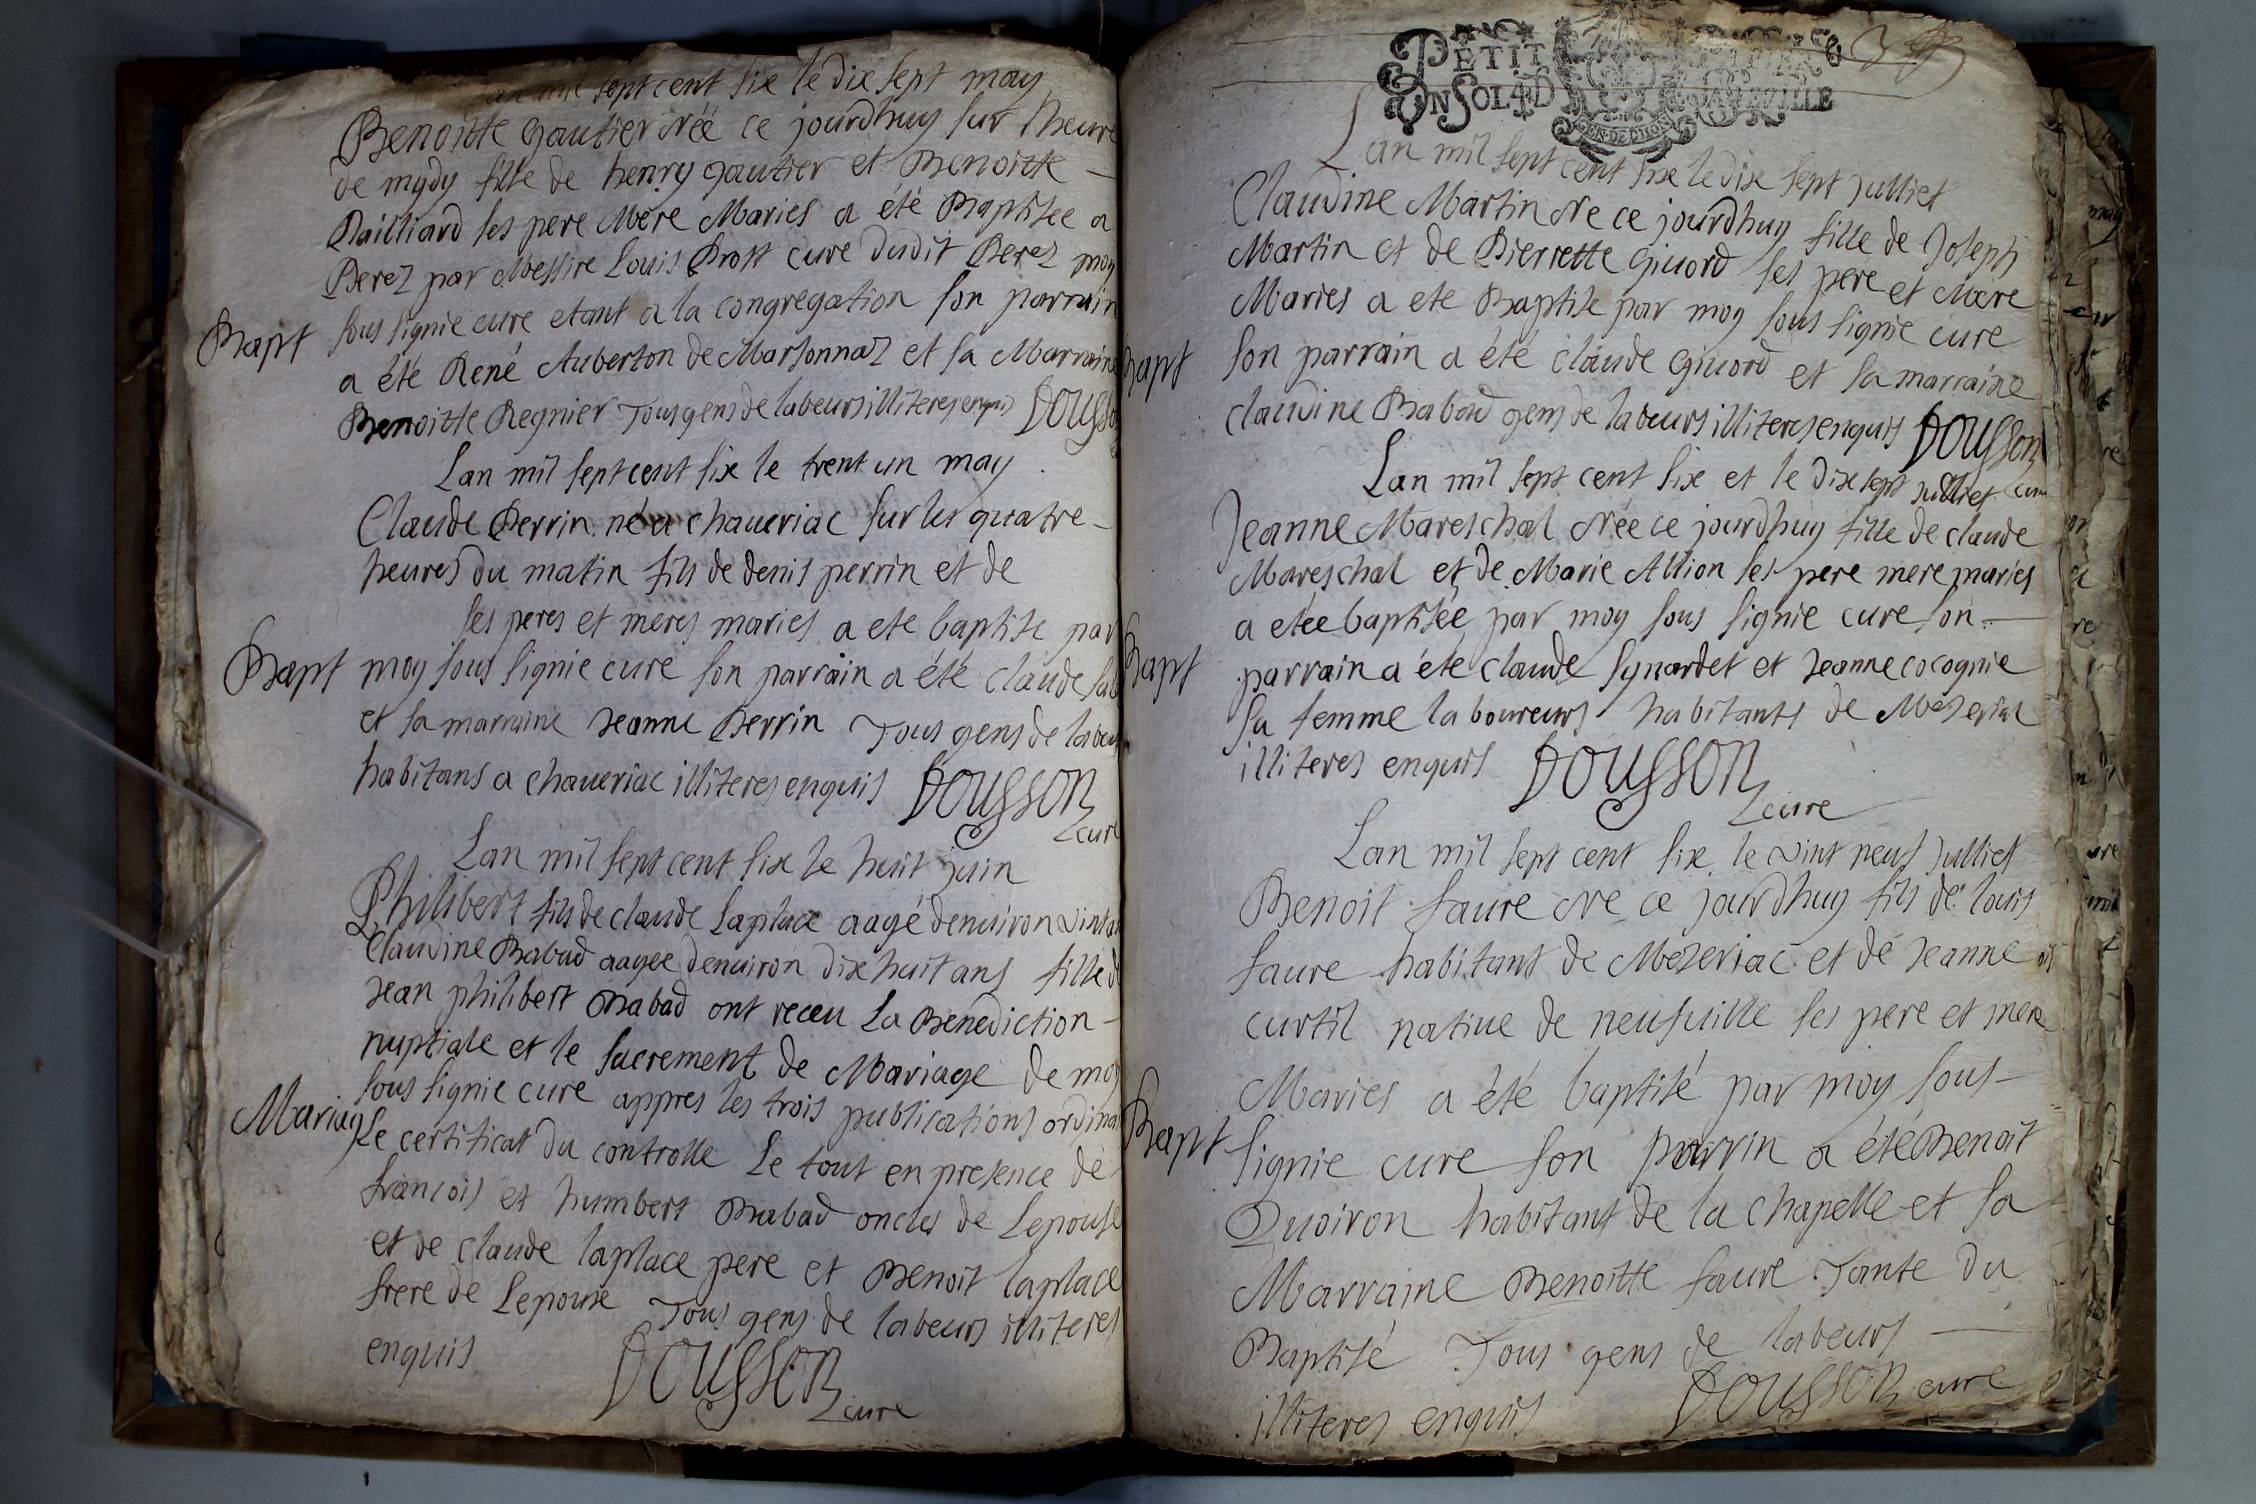 Lan mil sept cent six le dix sept may
Benoitte gautier Née ce jourdhuy sur lheure
de mydy fille de henry gautier et Benoitte
Railliard ses pere Mere Mariés a été Baptisee a
Perez par Messire Louis Prost cure dudit Perez moy
sous signie cure etant a la congregation son parrain
Bapt
a été René Auberton de Marsonnaz et sa Marraine
Benoitte Regnier Tous gens de labeurs illiteres enquis Dousson
Lan mil sept cent six le trent un may
Claude Perrin né a chaveriac sur les quatre
heures du matin fils de denis perrin et de
ses peres et meres mariés a ete baptise par
Bapt moy sous signie cure son parrain a été claude
et sa marraine Jeanne Perrin Tous gens de labeu
habitans a chaveriac illiteres enquis Dousson
cure
Lan mil sept cent six le huit juin
Philibert fils de claude Laplace aagé denviron vint an
Claudine Babad aagee denviron dix huit ans fille de
Jean philibert Babad ont receu La Benediction
nuptiale et le sacrement de Mariage de moy
sous signie cure appres les trois publications ordina
Mariag Le certificat du controlle Le tout en presence de
francois et humbert Babad oncles de Lepouse
et de claude laplace pere et Benoit laplace
frere de Lepoux Tous gens de labeurs illiteres
enquis Dousson
cure
PETIT PAPIER
UN SOL 4 D LA FEUILLE
GEN. DE DIJON
Lan mil sept cent six le dix sept julliet
Claudine Martin Ne ce jourdhuy fille de Joseph
Martin et de Pierrette Givord ses pere et Mere
Maries a ete Baptise par moy sous signie cure
Bapt son parrain a été claude Givord et sa marraine
claudine Babad gens de labeurs illiteres enquis Dousson
cure
Lan mil sept cent six et le dix sept julliet
Jeanne Mareschal Née ce jourdhuy fille de claude
Mareschal et de Marie Allion ses pere mere mariés
a etee baptisée par moy sous signie cure son
Bapt parrain a été claude Synardet et Jeanne cocognie
sa femme laboureurs habitants de Mezeriat
illiteres enquis Dousson
cure
Lan mil sept cent six le vint neuf julliet
Benoit faure Ne ce jourdhuy fils de louis
faure habitant de Mezeriac et de Jeanne
curtil native de neufville ses pere et mere
Maries a été baptisé par moy sous
Bapt signie cure son parrin a été Benoit
Quoiron habitant de la chapelle et sa
Marraine Benoitte faure Tante du
Baptisé Tous gens de labeurs
illiteres enquis Dousson cure